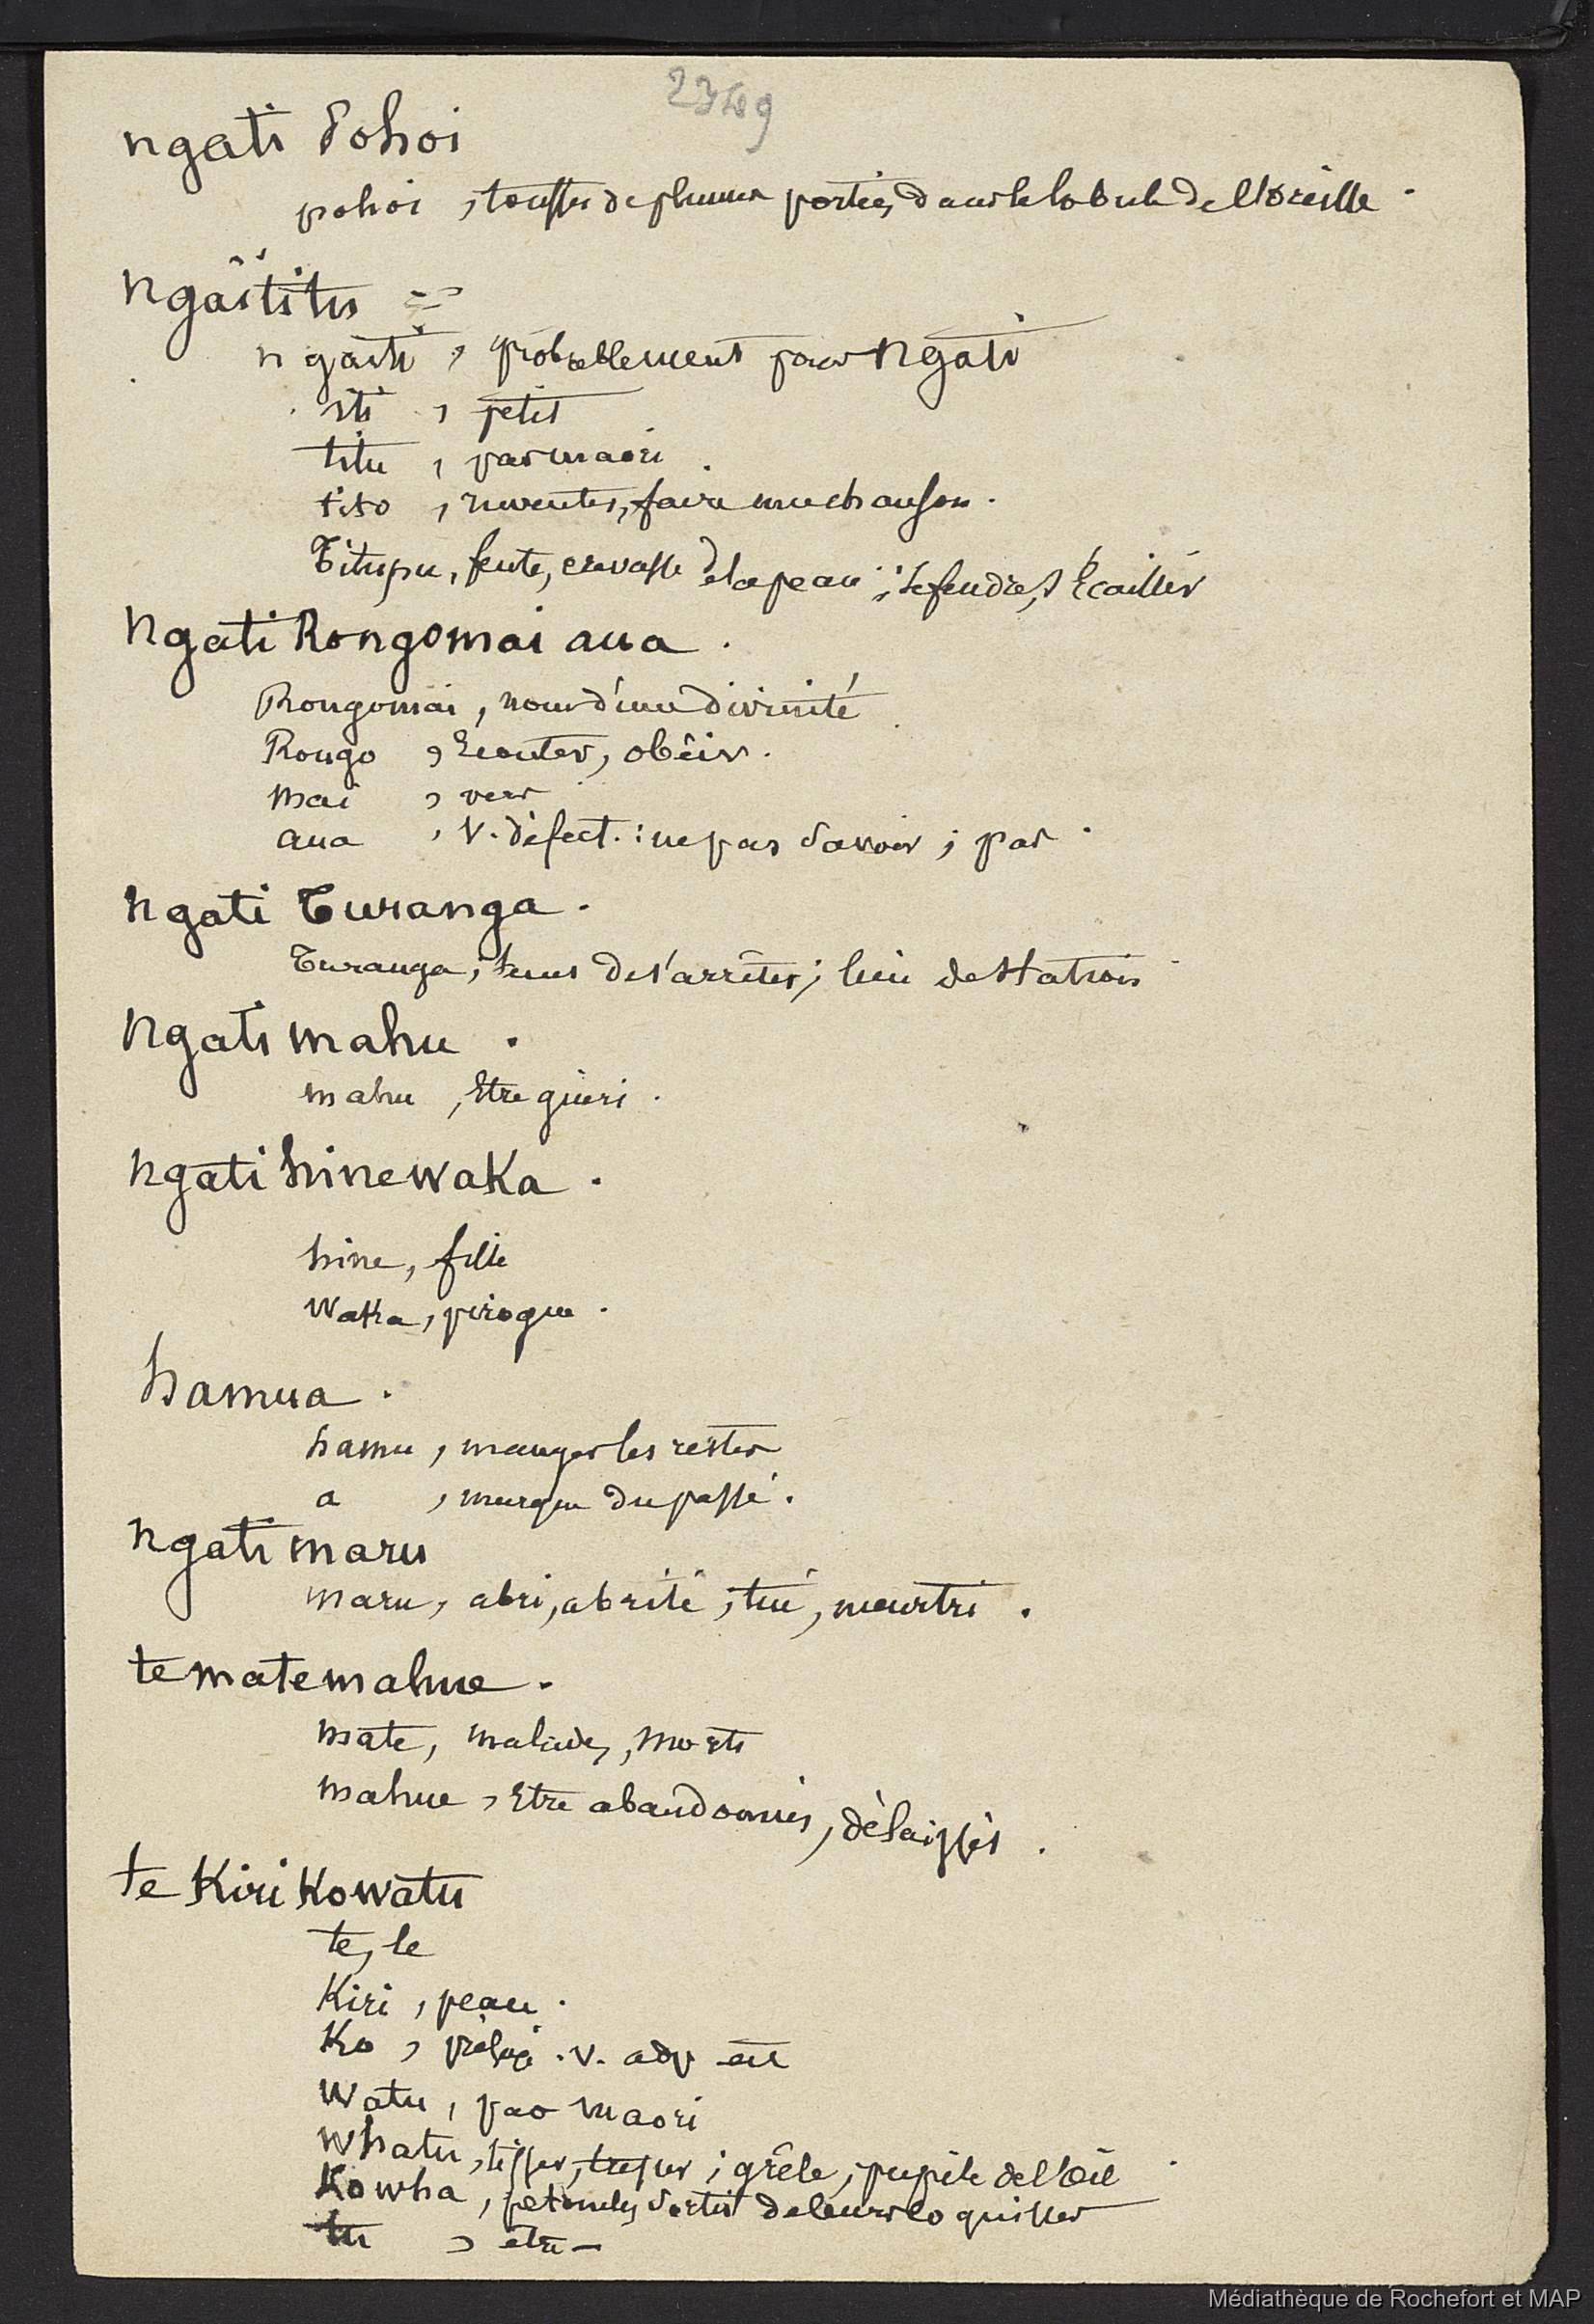 2349
ngati Pohoi
pohoi, touffes de plumes portées dans le lobule de l'oreille.
Ngāitītū =
ngaiti, probablement pour Ngati
iti, petit
titu, pas maori.
tito, inventer, faire une chanson.
Titupu, fente, crevasse de la peau; se fendre, s'écailler
Ngati Rongomai aua.
Rongomai, nom d'une divinité
Rongo, écouter, obéir.
mai, vers
aua, V. défect.: ne pas savoir; pas.
Ngati Turanga.
Turanga, temps de s'arrêter; lieu de station
Ngati mahu.
mahu, être guéri.
Ngati hinewaka.
hine, fille
waka, pirogue.
hamua.
hamu, manger les restes
a, marque du passé.
Ngati maru
maru, abri, abrité; tué, meurtri.
te matemahue.
mate, malades, morts
mahue, être abandonnés, délaissés.
te Kiri Kowatu
te, le
Kiri, peau.
Ko, v. adv
Watu, pas maori
Whatu, tisser; grêle; pupile de l'oeil.
Kowha, pétoncles sortis de leurs coquilles
tu, être
Médiathèque de Rochefort et MAP